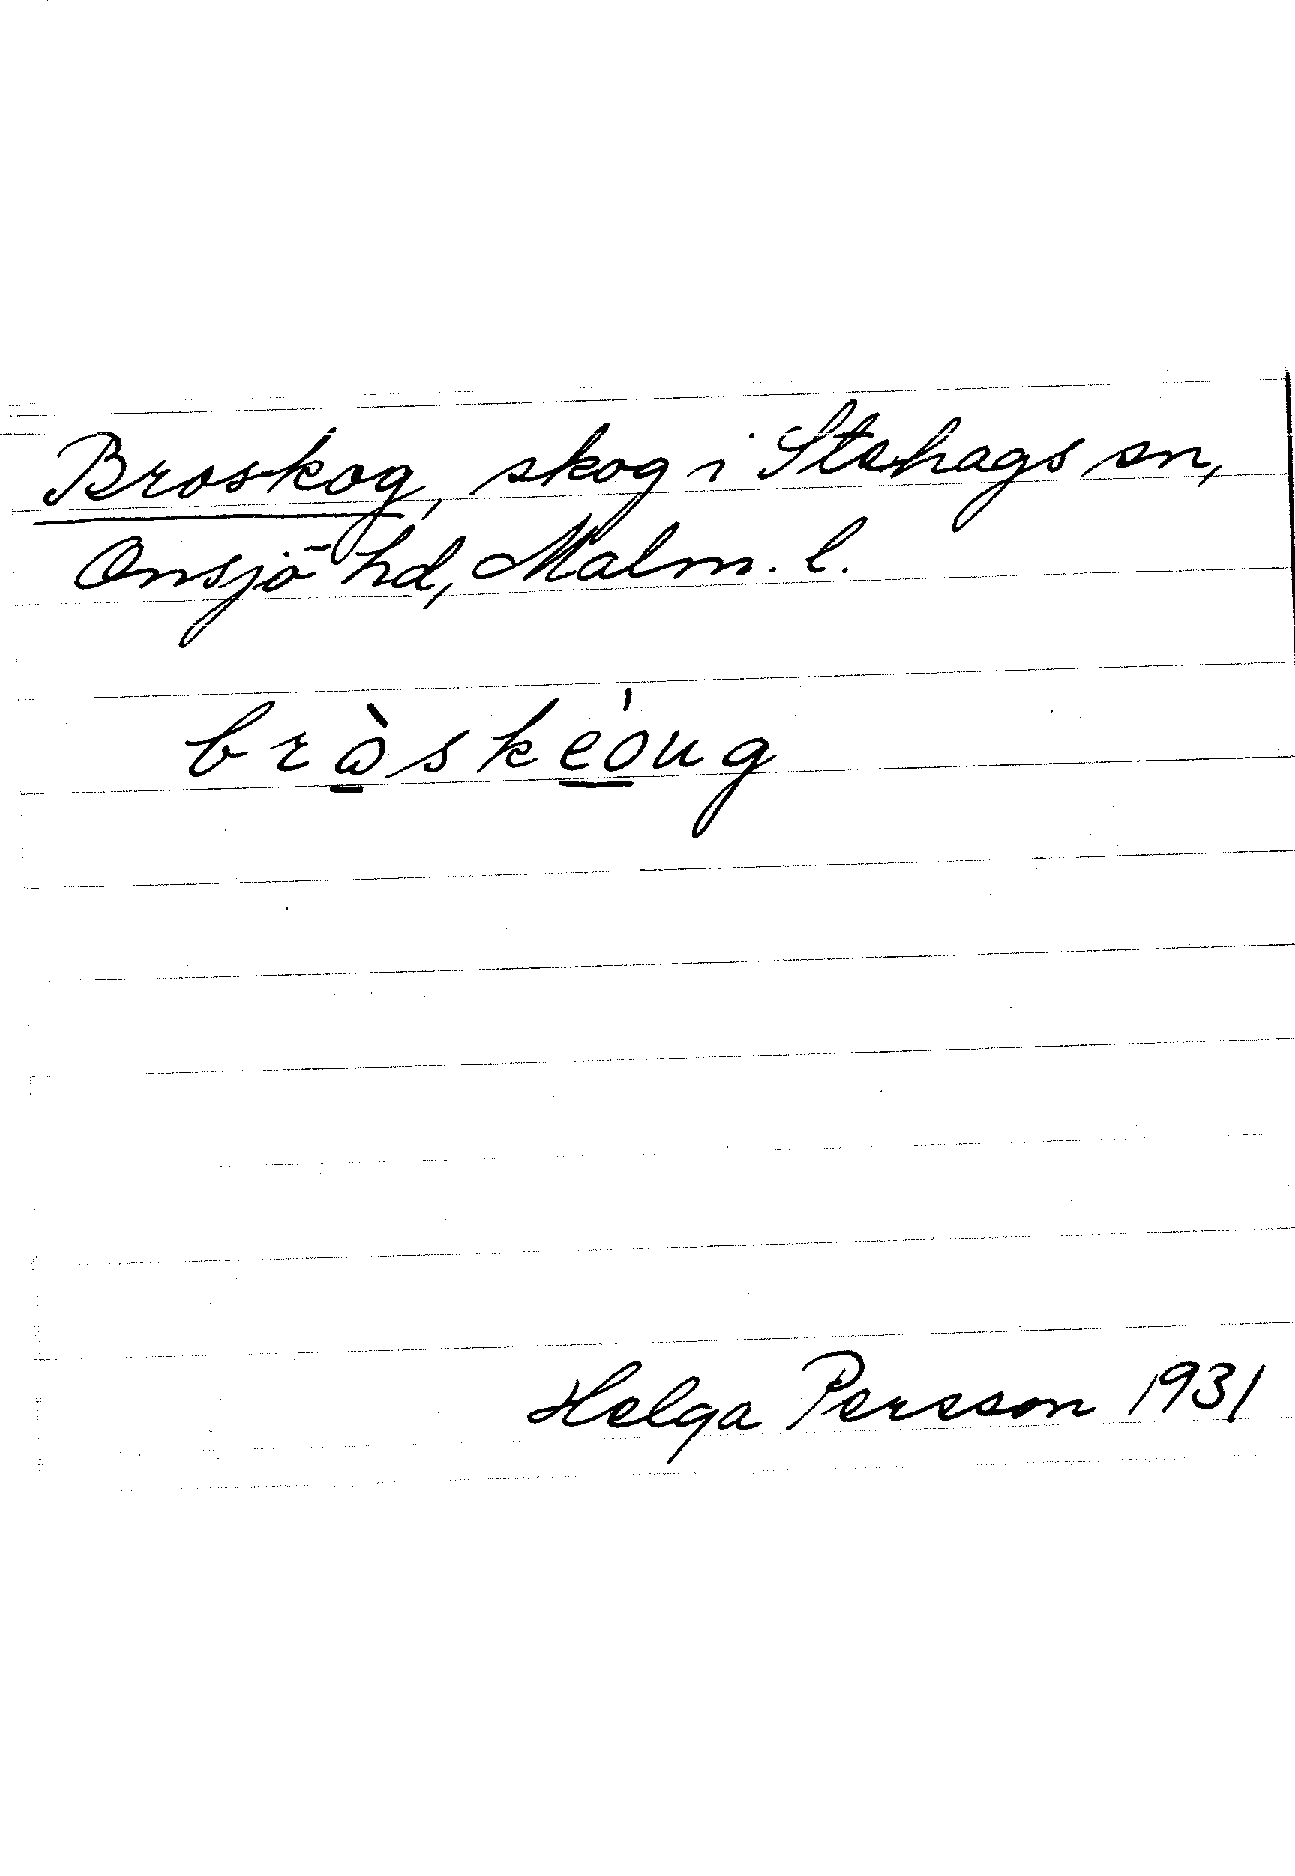 Broskog, skog i Stehags sn,
Onsjö hd, Malm. l.
bròskeóug
Helga Persson 1931